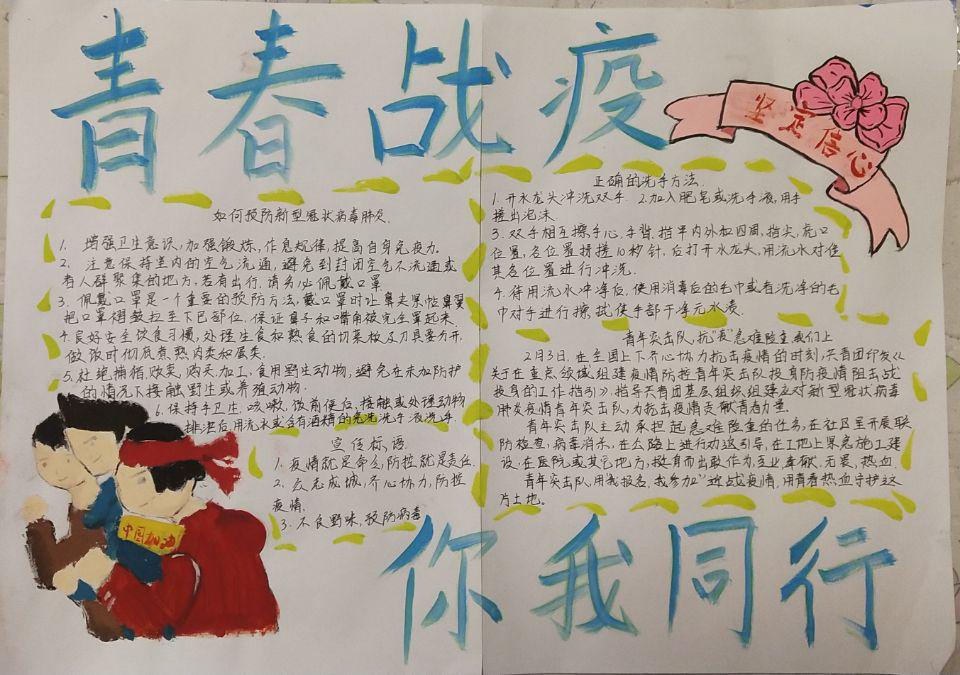 青春战疫
坚定信心
如何预防新型冠状病毒肺炎
1. 增强卫生意识,加强锻炼,作息规律,提高自身免疫力。
2. 注意保持室内的空气流通,避免到封闭空气不流通或
有人群聚集的地方,若有出行,请务必佩戴口罩
3. 佩戴口罩是一个重要的预防方法,戴口罩时让鼻夹紧临鼻翼
把口罩褶皱拉至下巴部位,保证鼻子和嘴角被完全罩起来.
4. 良好安全饮食习惯,处理生食和熟食的切菜板及刀具要分开,
做饭时彻底煮熟肉类和蛋类.
5. 杜绝捕猎,贩卖,购买,加工,食用野生动物,避免在未加防护
的情况下接触野生或养殖动物.
6. 保持手卫生,咳嗽,饭前便后,接触或处理动物
排泄后用流水或含有酒精的免洗洗手液洗手
宣传标语
1. 疫情就是命令,防控就是责任
2. 众志成城,齐心协力,防控
疫情.
3. 不食野味,预防病毒
中国加油
正确的洗手方法.
1. 开水龙头冲洗双手. 2. 加入肥皂或洗手液,用手
搓出泡沫.
3. 双手相互擦手心,手背,指甲内外和四周,指尖,虎口
位置,各位置揉搓10秒钟,后打开水龙头,用流水对使
其各位置进行冲洗.
4. 待用流水冲净后,使用消毒后的毛巾或者洗净的毛
巾对手进行擦拭使手部干净无水渍.
青年突击队,抗“疫”急难险重我们上
2月3日,在全国上下齐心协力抗击疫情的时刻,共青团印发《
关于在重点领域组建疫情防控青年突击队投身防疫情阻击战
投身的工作指引》,指导共青团基层组织组建应对新型冠状病毒
肺炎疫情青年突击队,为抗击疫情贡献青春力量.
青年突击队主动承担起急难险重的任务,在社区里开展联
防检查,病毒消杀,在公路上进行劝返引导,在工地上紧急施工建
设,在医院或其它地方,挺身而出敢作为,敬业,奉献,无畏,热血.
青年突击队,用“我报名,我参加”迎战疫情,用青春热血守护这
片土地.
你我同行